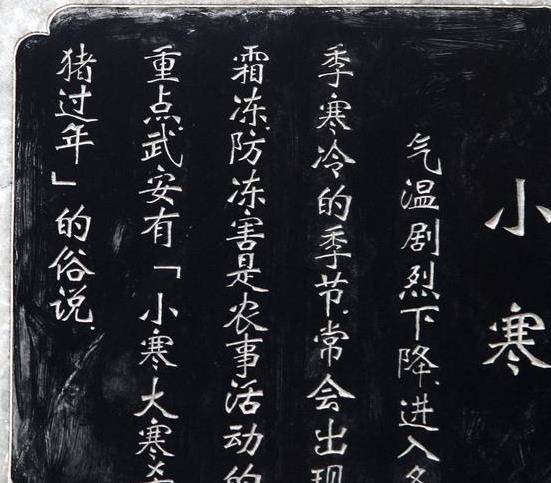 小寒
气温剧烈下降、进入
季寒冷的季节、常会出现
霜冻、防冻害是农事活动的
重点、武安有「小寒大寒
猪过年」的俗说、